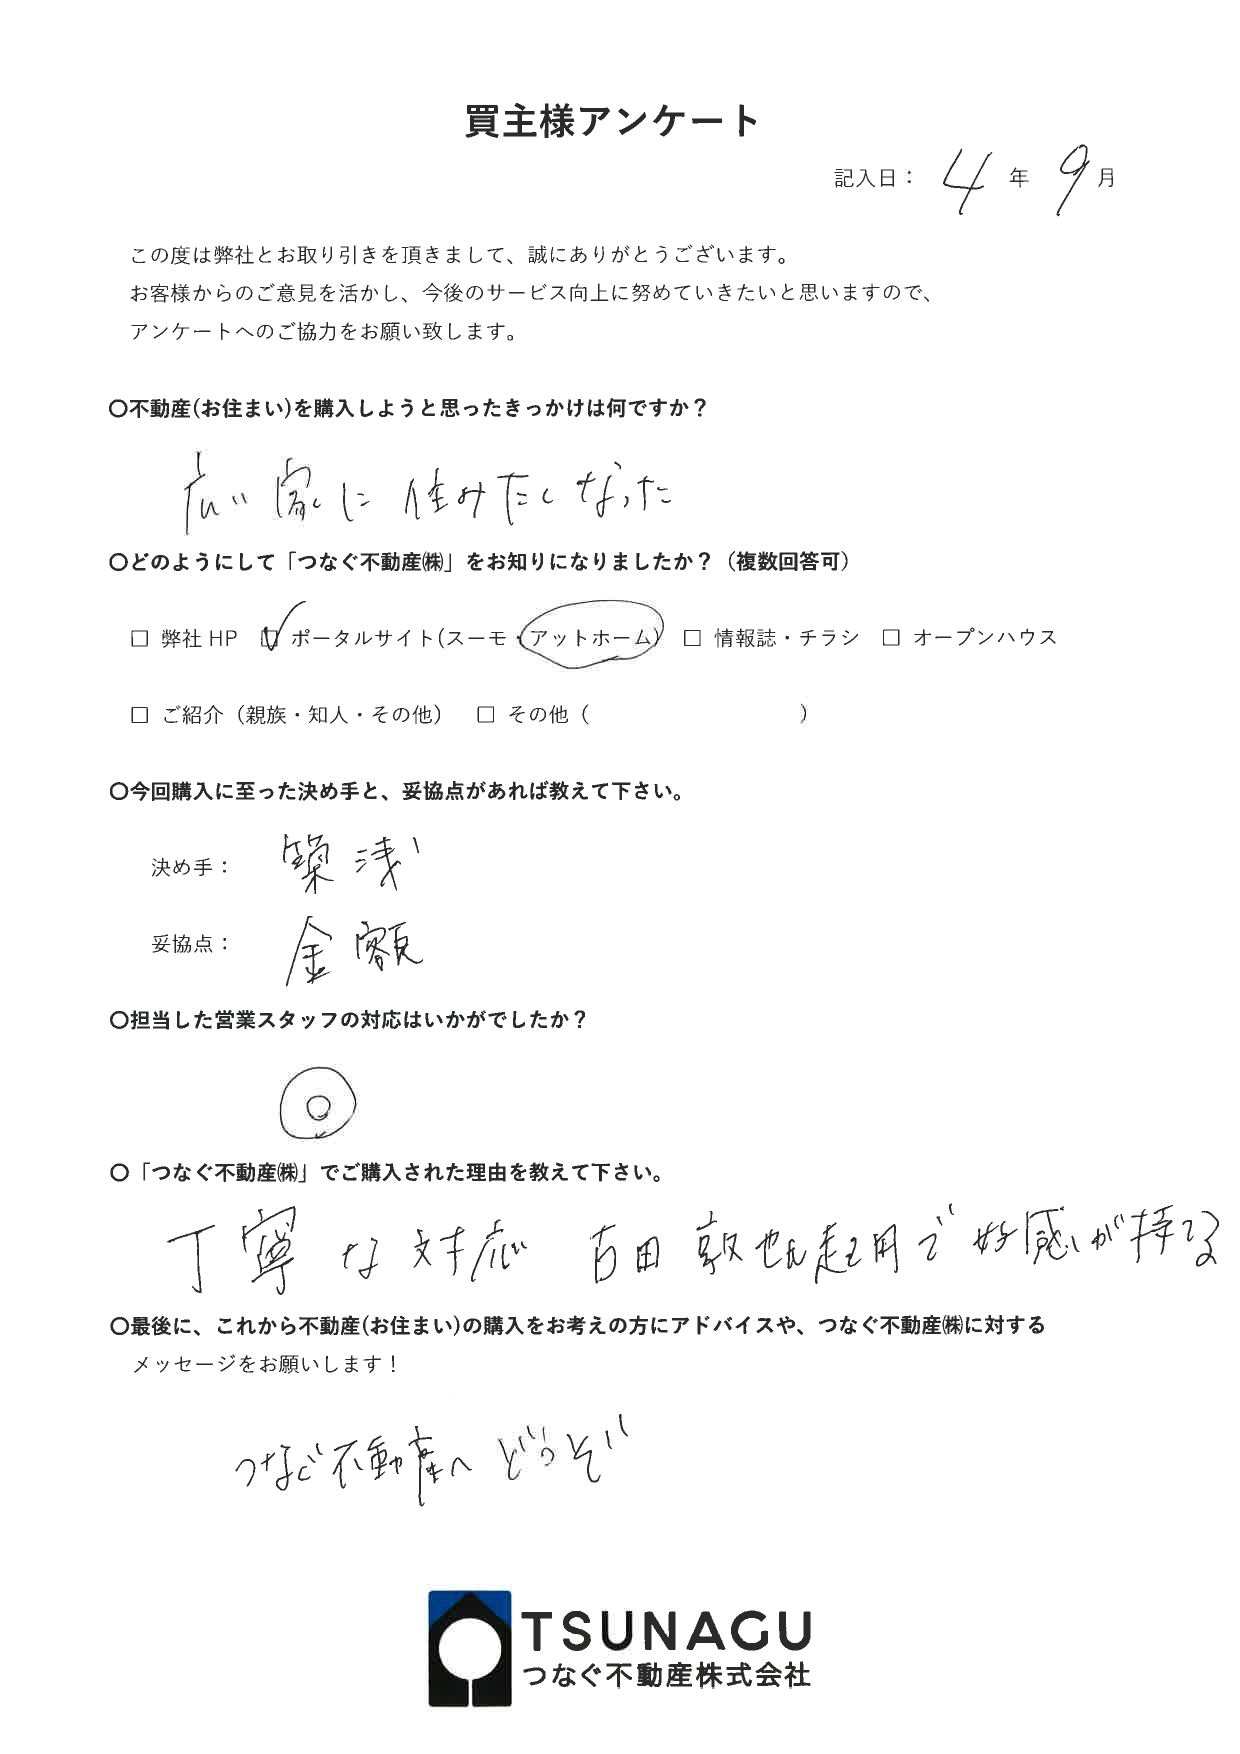 買主様アンケート
記入日： 4 年 9 月
この度は弊社とお取り引きを頂きまして、誠にありがとうございます。
お客様からのご意見を活かし、今後のサービス向上に努めていきたいと思いますので、
アンケートへのご協力をお願い致します。
〇不動産(お住まい)を購入しようと思ったきっかけは何ですか？
広い家に住みたくなった
〇どのようにして「つなぐ不動産㈱」をお知りになりましたか？（複数回答可）
□ 弊社 HP ☑ ポータルサイト(スーモ・アットホーム) □ 情報誌・チラシ □ オープンハウス
□ ご紹介（親族・知人・その他） □ その他（ ）
〇今回購入に至った決め手と、妥協点があれば教えて下さい。
決め手： 築浅
妥協点： 金額
〇担当した営業スタッフの対応はいかがでしたか？
◎
〇「つなぐ不動産㈱」でご購入された理由を教えて下さい。
丁寧な対応 百田敦也起用で好感が持てる
〇最後に、これから不動産(お住まい)の購入をお考えの方にアドバイスや、つなぐ不動産㈱に対する
メッセージをお願いします！
つなぐ不動産へどうぞ
TSUNAGU
つなぐ不動産株式会社